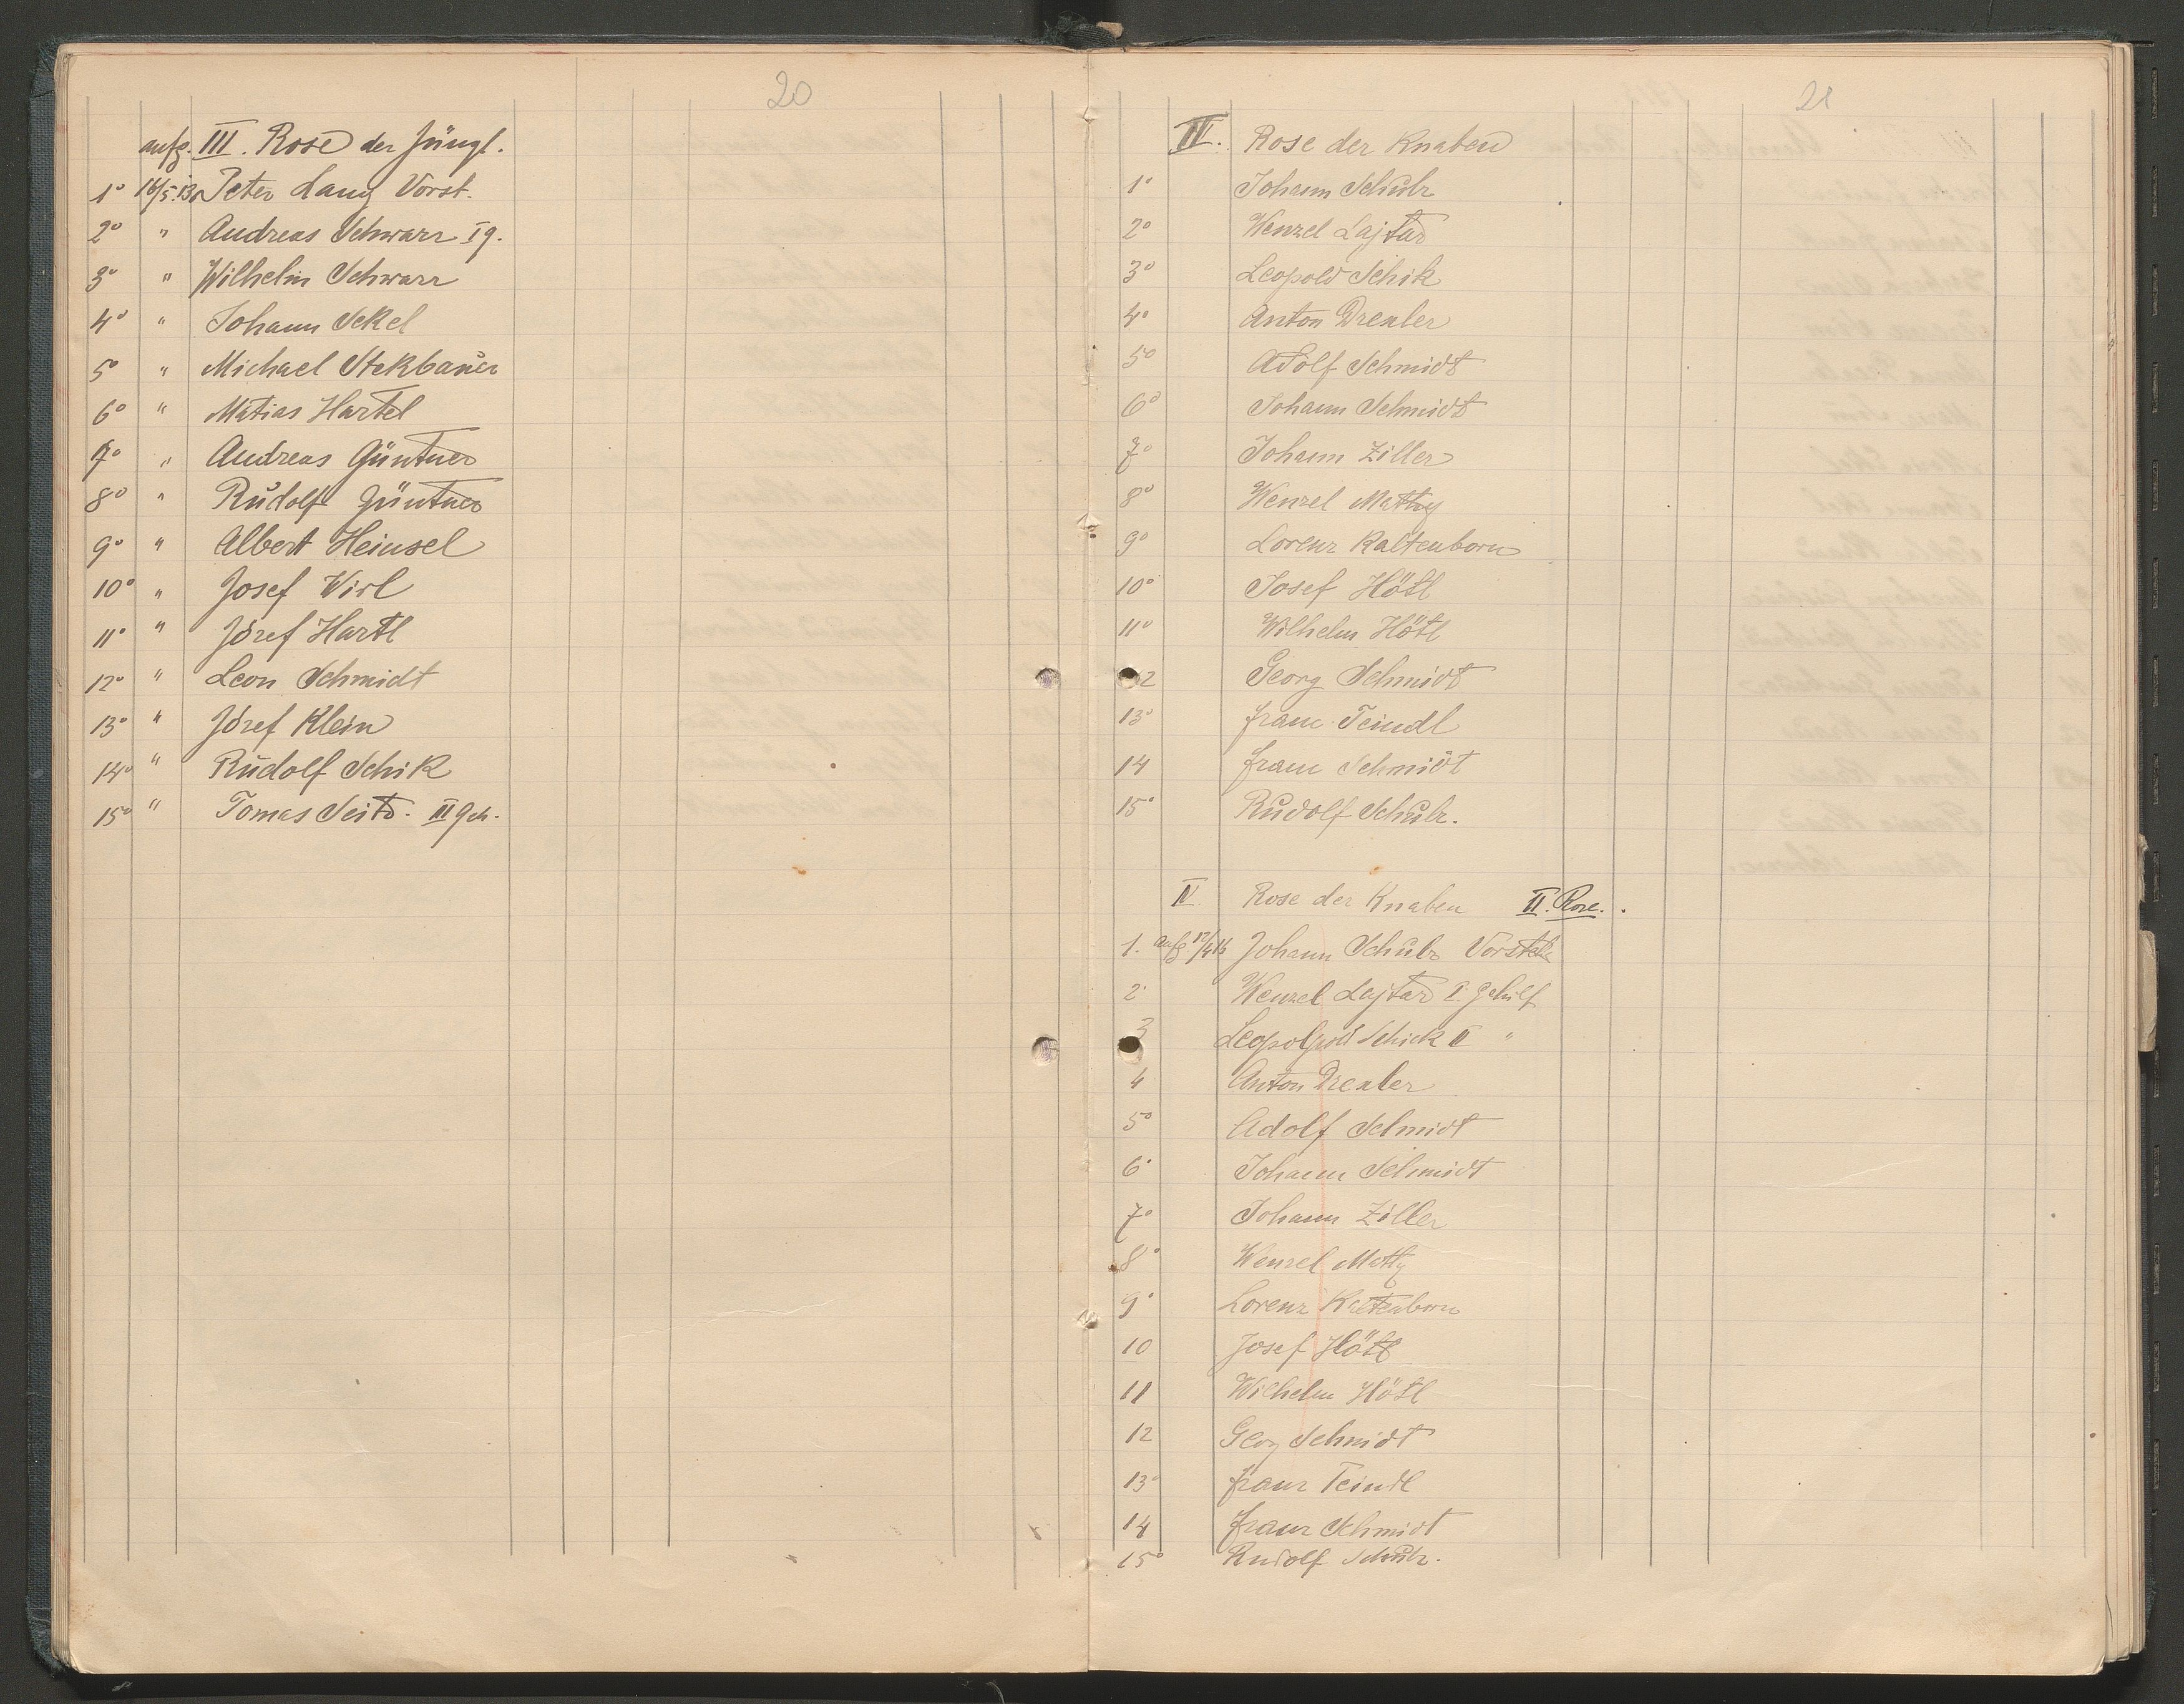 20
aufg. III. Rose der Jüngl.
1° 16/5.13. Peter Lang Vorst.
2° " Andreas Schwarz I g.
3° " Wilhelm Schwarz
4° " Johann Sekel
5° " Michael Stekbauer
6° " Matias Hartel
7° " Andreas Güntner
8° " Rudolf Güntner
9° " Albert Heinsel
10° " Josef Wirl
11° " Józef Hartl
12° " Leon Schmidt
13° " Józef Klein
14° " Rudolf Schik
15° " Tomas Seito. III Geh.
21
IV. Rose der Knaben
1° Johann Schulz
2° Wenzel Lajtar
3° Leopold Schik
4° Anton Drexler
5° Adolf Schmidt
6° Johann Schmidt
7° Johann Ziller
8° Wenzel Mathy
9° Lorenz Kaltenborn
10° Josef Hötl
11° Wilhelm Hötl
12 Georg Schmidt
13° Franz Teindl
14 Franz Schmidt
15° Rudolf Schulz.
IV. Rose der Knaben II. Rose.
1. aufg. 12/4 16 Johann Schulz Vorsteh
2 Wenzel Lajtar I. Gehilf
3 Leopold Schick II "
4 Anton Drexler
5° Adolf Schmidt
6° Johann Schmidt
7° Johann Ziller
8° Wenzel Mathy
9° Lorenz Kaltenborn
10 Josef Hötl
11 Wilhelm Hötl
12 Georg Schmidt
13° Franz Teindl
14 Franz Schmidt
15° Rudolf Schulz.